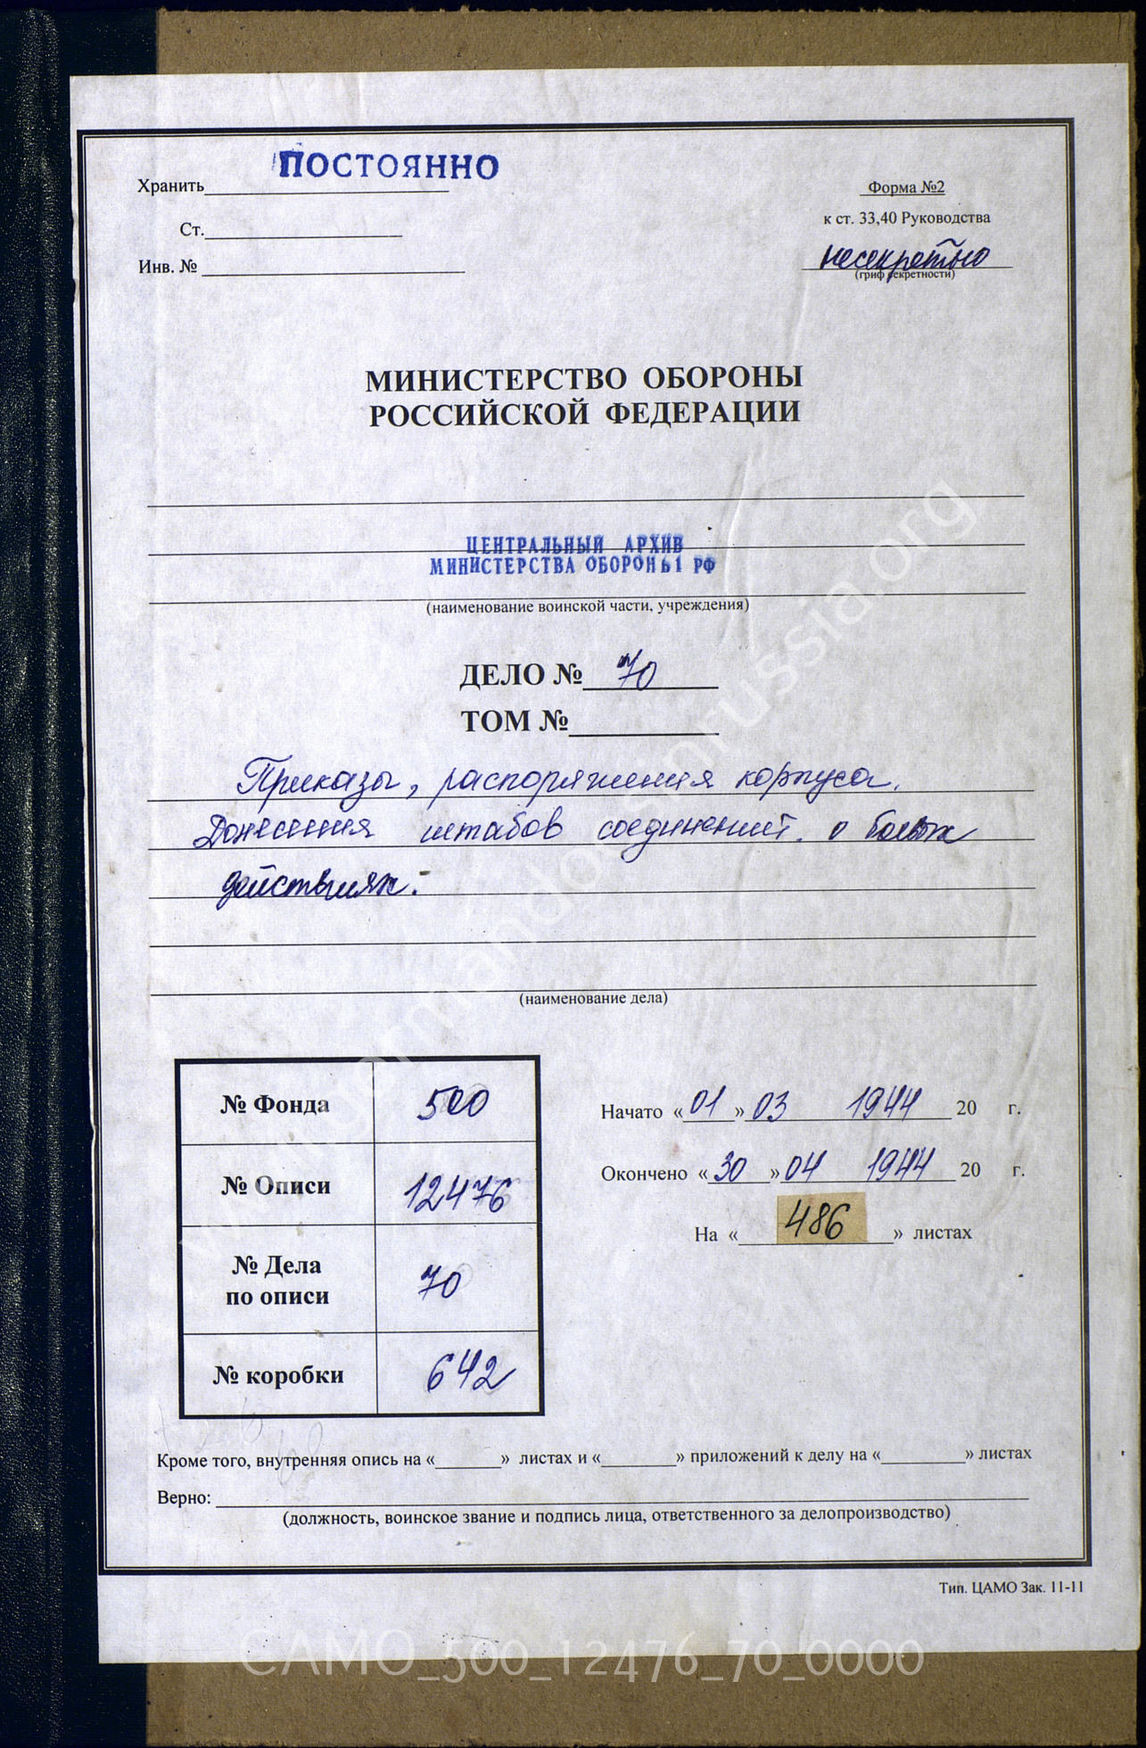 Хранить ПОСТОЯННО
Форма №2
Ст.
к ст. 33,40 Руководства
Инв. №
несекретно
(гриф секретности)
МИНИСТЕРСТВО ОБОРОНЫ
РОССИЙСКОЙ ФЕДЕРАЦИИ
ЦЕНТРАЛЬНЫЙ АРХИВ
МИНИСТЕРСТВА ОБОРОНЫ РФ
(наименование воинской части, учреждения)
ДЕЛО № 70
ТОМ №
Приказы, распоряжения корпуса.
Донесения штабов соединений о боевых
действиях.
(наименование дела)
№ Фонда 500
№ Описи 12476
№ Дела
по описи 70
№ коробки 642
Начато «01» 03 1944 20 г.
Окончено «30» 04 1944 20 г.
На «486» листах
Кроме того, внутренняя опись на « » листах и « » приложений к делу на « » листах
Верно:
(должность, воинское звание и подпись лица, ответственного за делопроизводство)
Тип. ЦАМО Зак. 11-11
CAMO_500_12476_70_0000